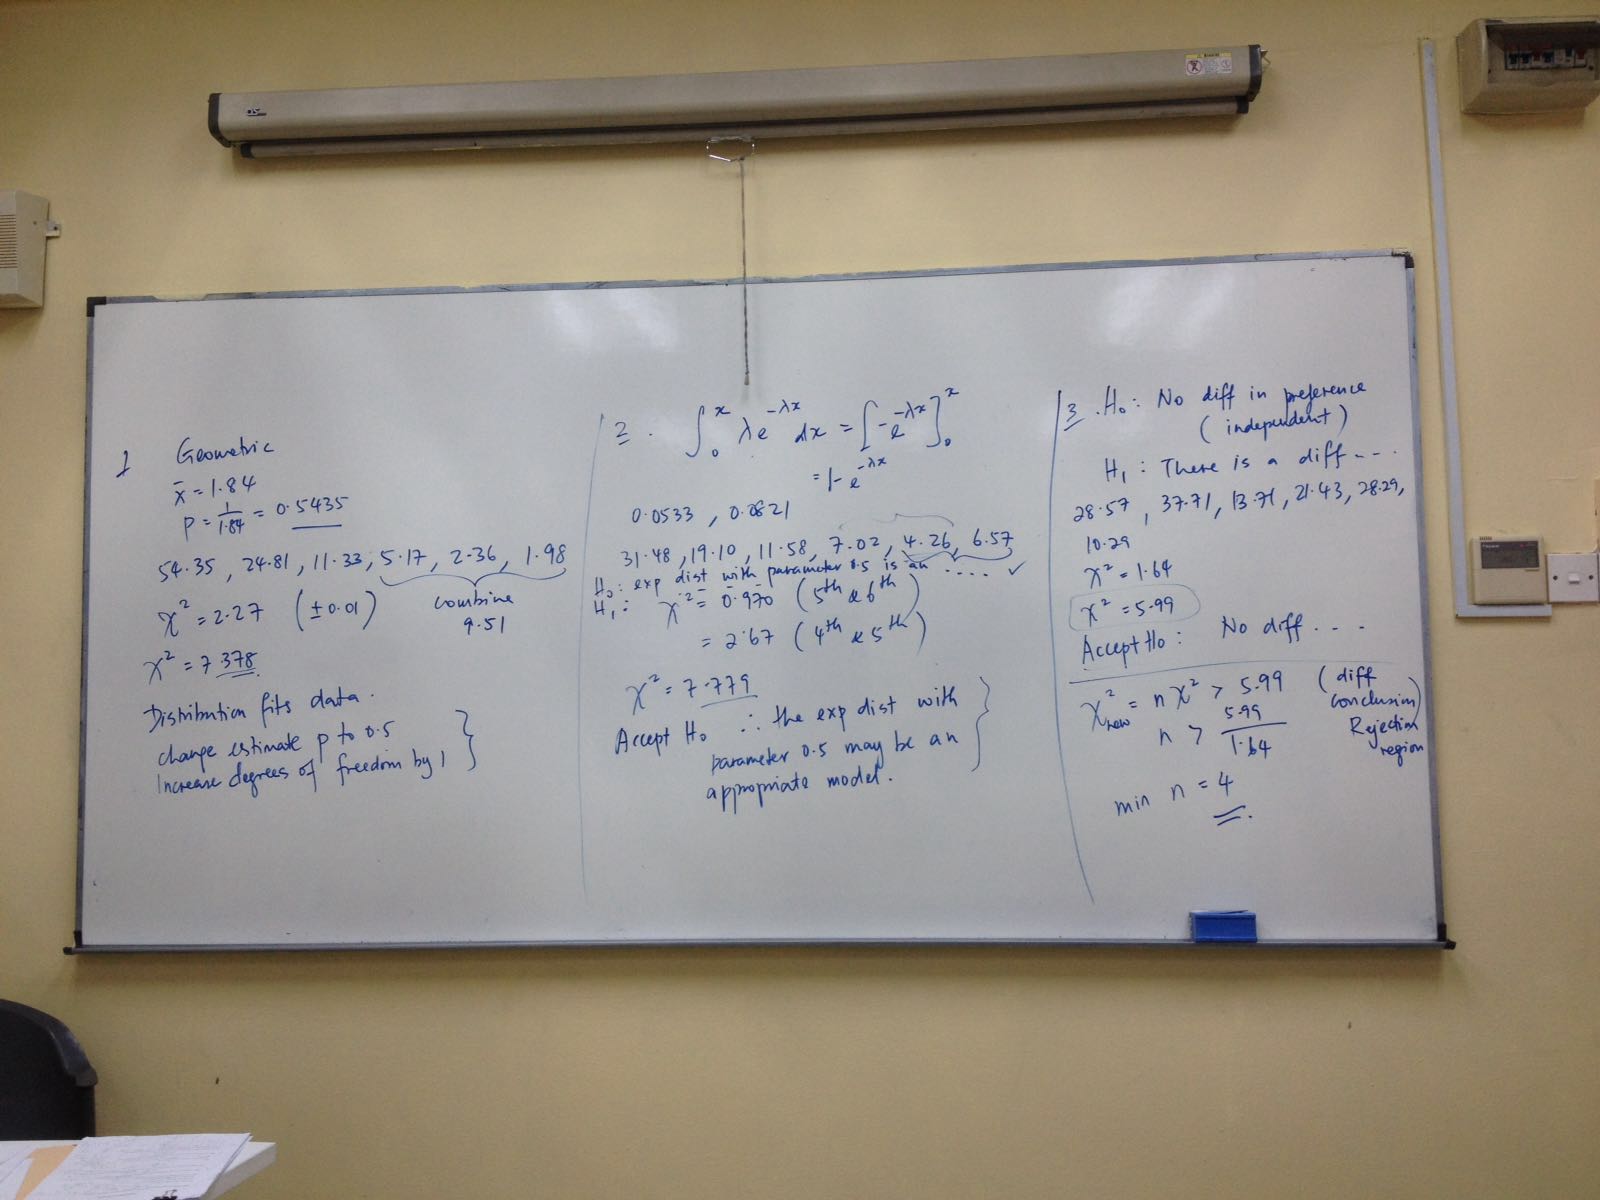 1 Geometric
x̄ = 1.84
p = 1/1.84 = 0.5435
54.35, 24.81, 11.33, 5.17, 2.36, 1.98
combine
9.51
χ² = 2.27 (±0.01)
χ² = 7.378
Distribution fits data.
change estimate p to 0.5
Increase degrees of freedom by 1
2. ∫₀ˣ λe^{-λx} dx = [-e^{-λx}]₀ˣ
= 1 - e^{-λx}
0.0533, 0.0821
31.48, 19.10, 11.58, 7.02, 4.26, 6.57
H₀: exp dist with parameter 0.5 is an .... ✓
H₁: χ² = 0.970 (5th & 6th)
= 2.67 (4th & 5th)
χ² = 7.779
Accept H₀ ∴ the exp dist with
parameter 0.5 may be an
appropriate model.
3. H₀: No diff in preference
(independent)
H₁: There is a diff ....
28.57, 37.71, 13.71, 21.43, 28.29,
10.29
χ² = 1.64
χ² = 5.99
Accept H₀: No diff ....
χ²new = nχ² > 5.99 (diff
conclusion)
n > 5.99/1.64
Rejection
region
min n = 4